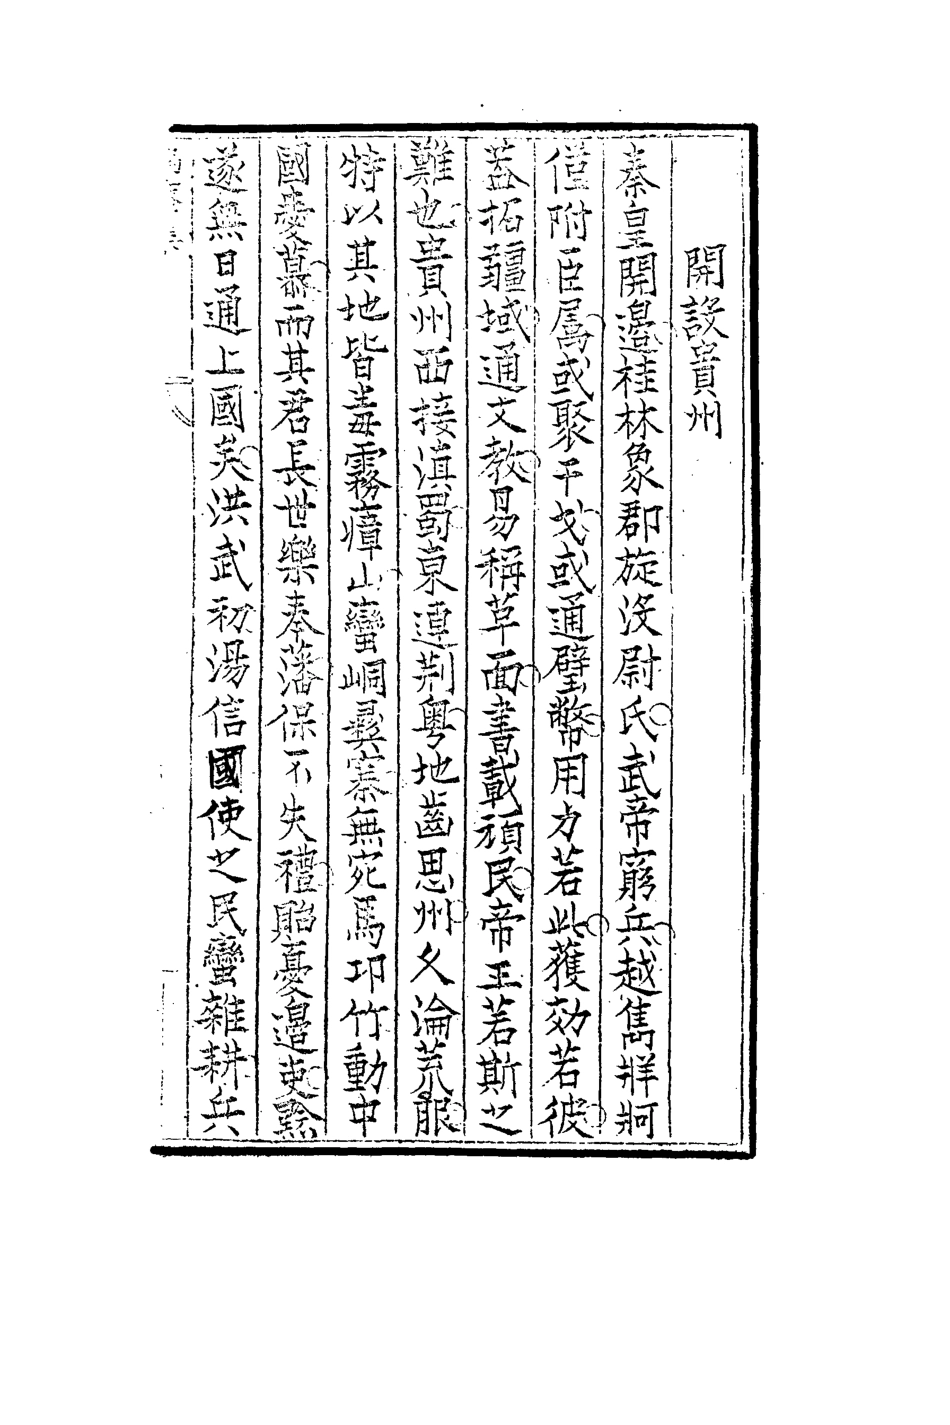 開設貴州
秦皇開邊桂林象郡旋沒尉氏武帝窮兵越雋牂牁
僅附臣属或聚干戈或通璧幣用力若此獲効若彼
葢拓疆域通文教易稱草面書載頑民帝王若斯之
難也貴州西接滇蜀東連荆粤地齒思州久淪荒服
特以其地皆毒霧瘴山蠻峒彞寨無宛馬卭竹動中
國憂慕而其君長世樂奉藩保不失禮貽憂邉吏黔
遂無日通上國矣洪武初湯信國使之民蠻雜耕兵